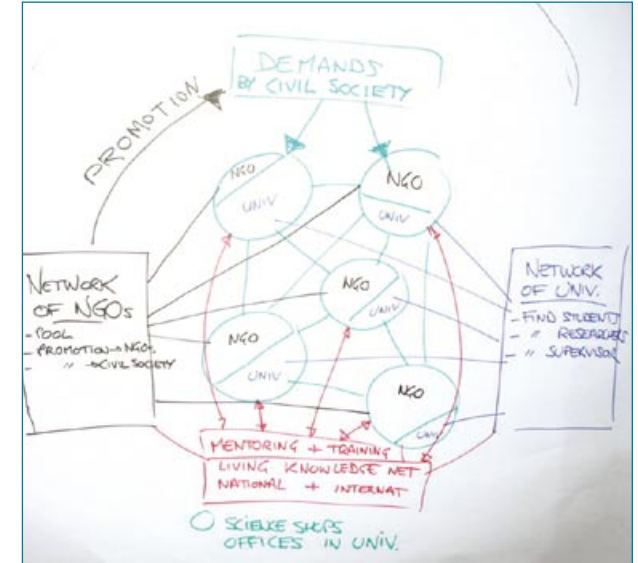 DEMANDS
BY CIVIL SOCIETY
PROMOTION
NGO
UNIV
NGO
UNIV
NGO
UNIV
NGO
UNIV
NGO
UNIV
NETWORK
OF NGOs
- POOL
- PROMOTION → NGOs
- " → CIVIL SOCIETY
NETWORK
OF UNIV.
- FIND STUDENTS
- " RESEARCHERS
- " SUPERVISOR
MENTORING + TRAINING
LIVING KNOWLEDGE NET
NATIONAL + INTERNAT
SCIENCE SHOPS
OFFICES IN UNIV.